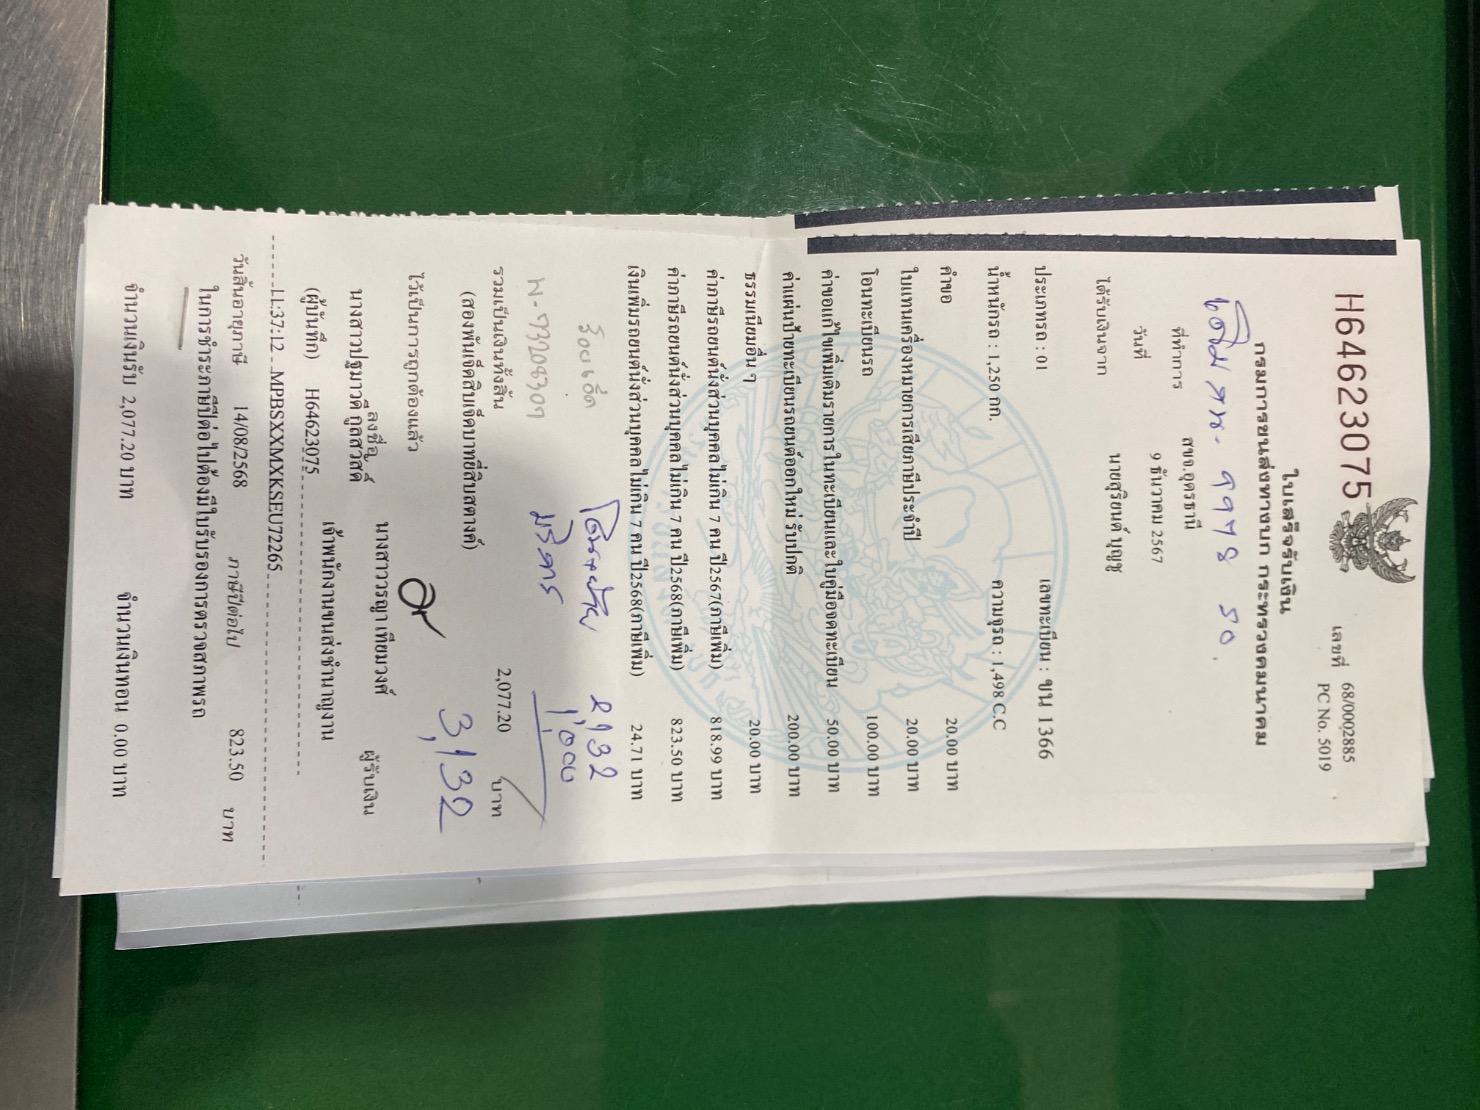 H64623075
เลขที่ 68/0002885
PC No. 5019
ใบเสร็จรับเงิน
กรมการขนส่งทางบก กระทรวงคมนาคม
เดิม
50
ที่ทำการ สขจ.อุดรธานี
วันที่ 9 ธันวาคม 2567
ได้รับเงินจาก นายสุริยนต์ บุญชู
ประเภทรถ : 01 เลขทะเบียน : ขน 1366
น้ำหนักรถ : 1,250 กก. ความจุรถ : 1,498 C.C
คำขอ 20.00 บาท
ใบแทนเครื่องหมายการเสียภาษีประจำปี 20.00 บาท
โอนทะเบียนรถ 100.00 บาท
ค่าขอแก้ไขเพิ่มเติมรายการในทะเบียนและใบคู่มือจดทะเบียน 50.00 บาท
ค่าแผ่นป้ายทะเบียนรถยนต์ออกใหม่ รับปกติ 200.00 บาท
ธรรมเนียมอื่น ๆ 20.00 บาท
ค่าภาษีรถยนต์นั่งส่วนบุคคลไม่เกิน 7 คน ปี2567(ภาษีเพิ่ม) 818.99 บาท
ค่าภาษีรถยนต์นั่งส่วนบุคคลไม่เกิน 7 คน ปี2568(ภาษีเพิ่ม) 823.50 บาท
เงินเพิ่มรถยนต์นั่งส่วนบุคคลไม่เกิน 7 คน ปี2568(ภาษีเพิ่ม) 24.71 บาท
ร้อยเอ็ด 2132
บริการ 1,000
รวมเป็นเงินทั้งสิ้น 2,077.20 บาท
(สองพันเจ็ดสิบเจ็ดบาทยี่สิบสตางค์)
3,132
ไว้เป็นการถูกต้องแล้ว
ลงชื่อ นางสาววรญา เทียมวงศ์ ผู้รับเงิน
นางสาวปฐมาวดี กูลสวัสดิ์ เจ้าพนักงานขนส่งชำนาญงาน
(ผู้บันทึก) H64623075
11:37:12 MPBSXXMXKSEU72265
วันสิ้นอายุภาษี 14/08/2568 ภาษีปีต่อไป 823.50 บาท
ในการชำระภาษีปีต่อไปต้องมีใบรับรองการตรวจสภาพรถ
จำนวนเงินรับ 2,077.20 บาท จำนวนเงินทอน 0.00 บาท